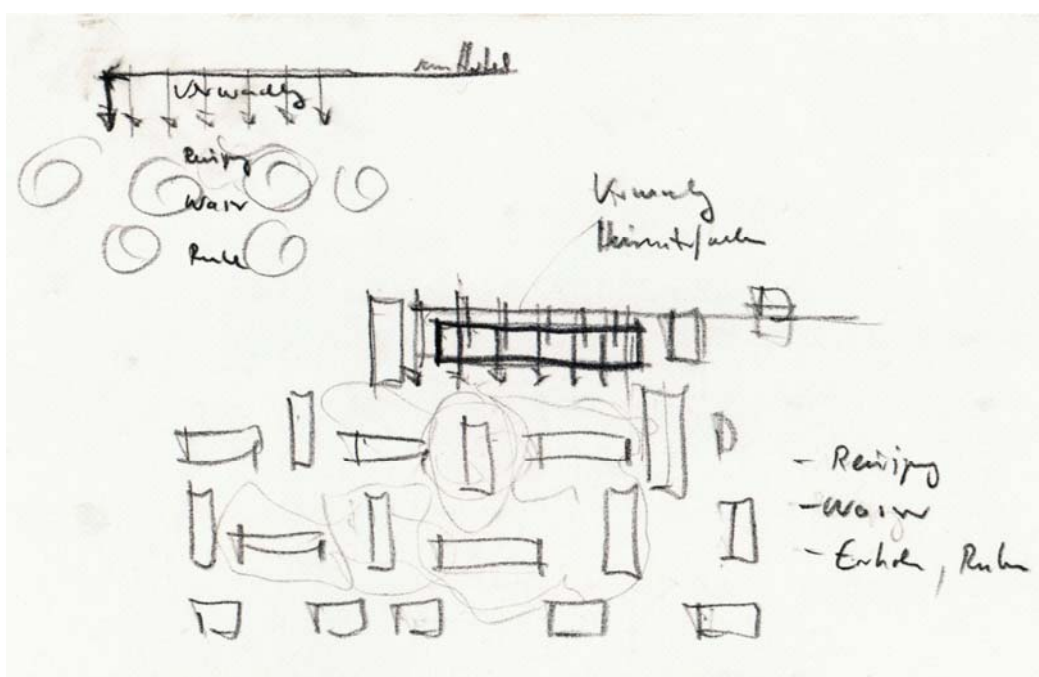 vom Hotel
Verwandlg
Reinigg
Wasser
Ruhe
Verwandlg
- Reinigg
- Wasser
- Erholen, Ruhen